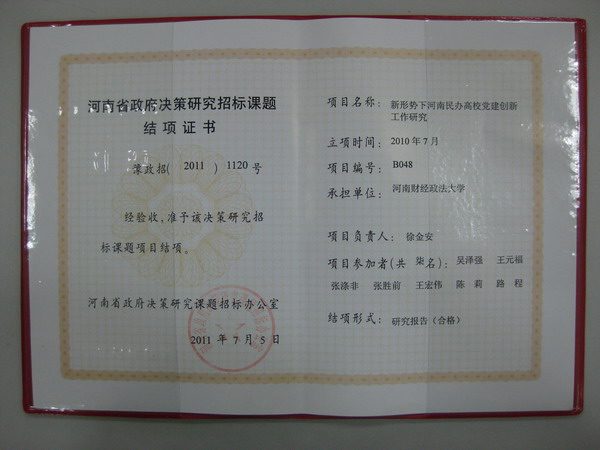 河南省政府决策研究招标课题
结项证书
豫政招( 2011 ) 1120 号
经验收，准予该决策研究招
标课题项目结项。
河南省政府决策研究课题招标办公室
2011 年 7 月 5 日
项目名称：新形势下河南民办高校党建创新
工作研究
立项时间：2010 年 7 月
项目编号：B048
承担单位：河南财经政法大学
项目负责人：徐金安
项目参加者(共 柒 名)：吴泽强 王元福
张涤非 张胜前 王宏伟 陈莉 路程
结项形式：研究报告（合格）